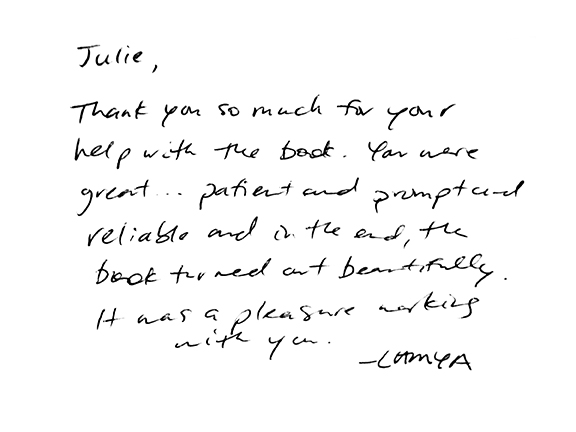 Julie,
Thank you so much for your
help with the book. You were
great... patient and prompt and
reliable and in the end, the
book turned out beautifully.
It was a pleasure working
with you.
-LAMYA